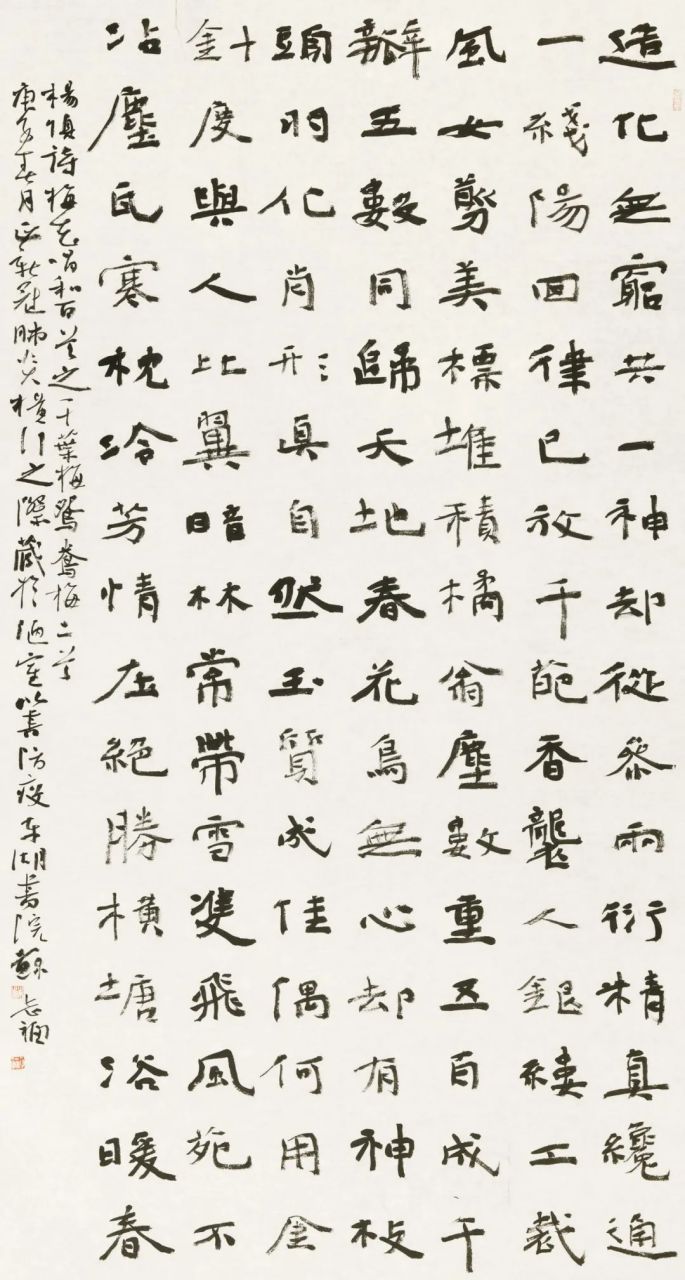 造化無窮共一神却從參兩衍精真纔通
一綫陽回律已放千葩香襲人銀縷工裁
風女剪美標堆積橘翁塵數重五自成千
瓣五數同歸天地春花鳥無心却有神枝
頭羽化肖形真自然玉質成佳偶何用金
針度與人比翼暗林常帶雪雙飛風苑不
沾塵氏寒枕冷芳情在絕勝橫塘浴暖春
楊慎詩梅花唱和百首之千葉梅鴛鴦梅二首
庚子春月正新冠肺炎橫行之際蔵於陋室以書防疫東湖書院蘇